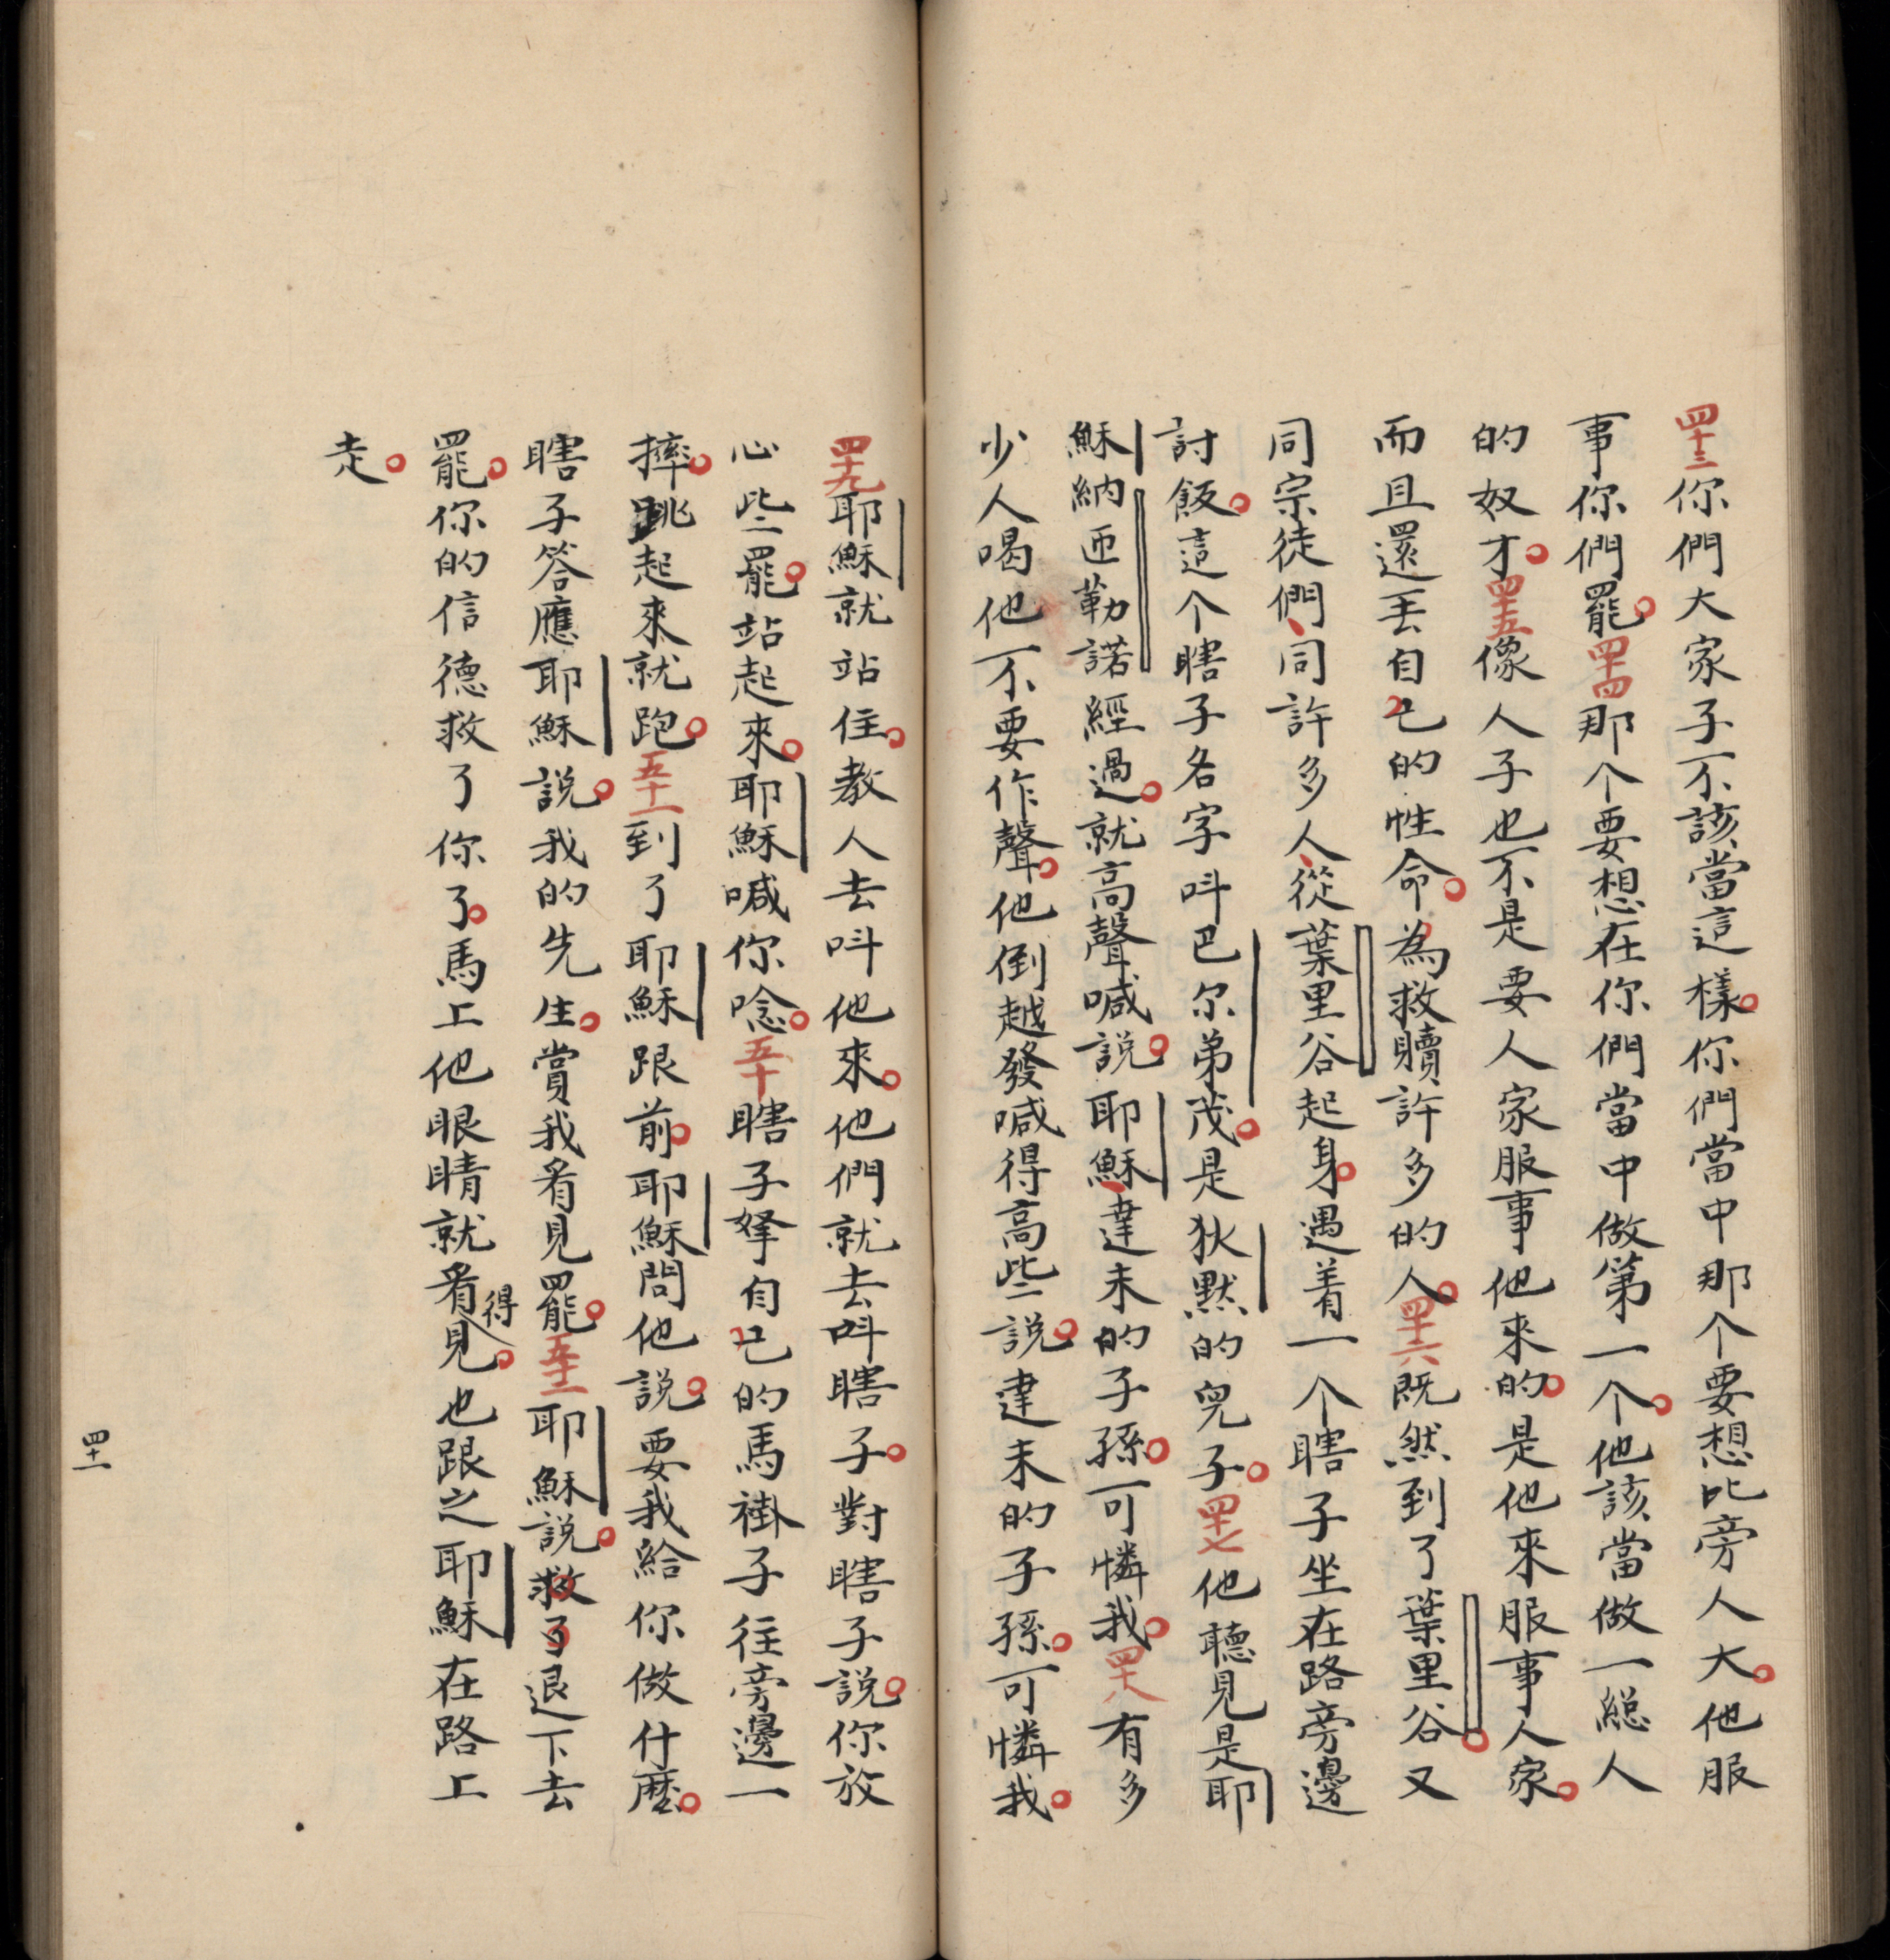 四十三你們大家子不該當這樣。你們當中那个要想比旁人大。他服
事你們罷。四十四那个要想在你們當中做第一个。他該當做一總人
的奴才。四十五像人子也不是要人家服事他來的。是他來服事人家。
而且還丟自己的性命。為救贖許多的人。四十六既然到了葉里谷。又
同宗徒們、同許多人、從葉里谷起身。遇着一个瞎子坐在路旁邊
討飯。這个瞎子名字呌巴尔弟茂。是狄默的兒子。四十七他聽見是耶
穌納匝勒諾經過。就高聲喊說。耶穌、達未的子孫。可憐我。四十八有多
少人喝他不要作聲。他倒越發喊得高些說。達未的子孫。可憐我。
四十九耶穌就站住。教人去呌他來。他們就去呌瞎子。對瞎子說。你放
心些罷。站起來。耶穌喊你唸。五十瞎子拏自己的馬褂子往旁邊一
摔。跳起來就跑。五十一到了耶穌跟前。耶穌問他說。要我給你做什麼。
瞎子答應耶穌說。我的先生。賞我看見罷。五十二耶穌說。救了退下去
罷。你的信德救了你了。馬上他眼睛就看得見。也跟之耶穌在路上
走。
四十一